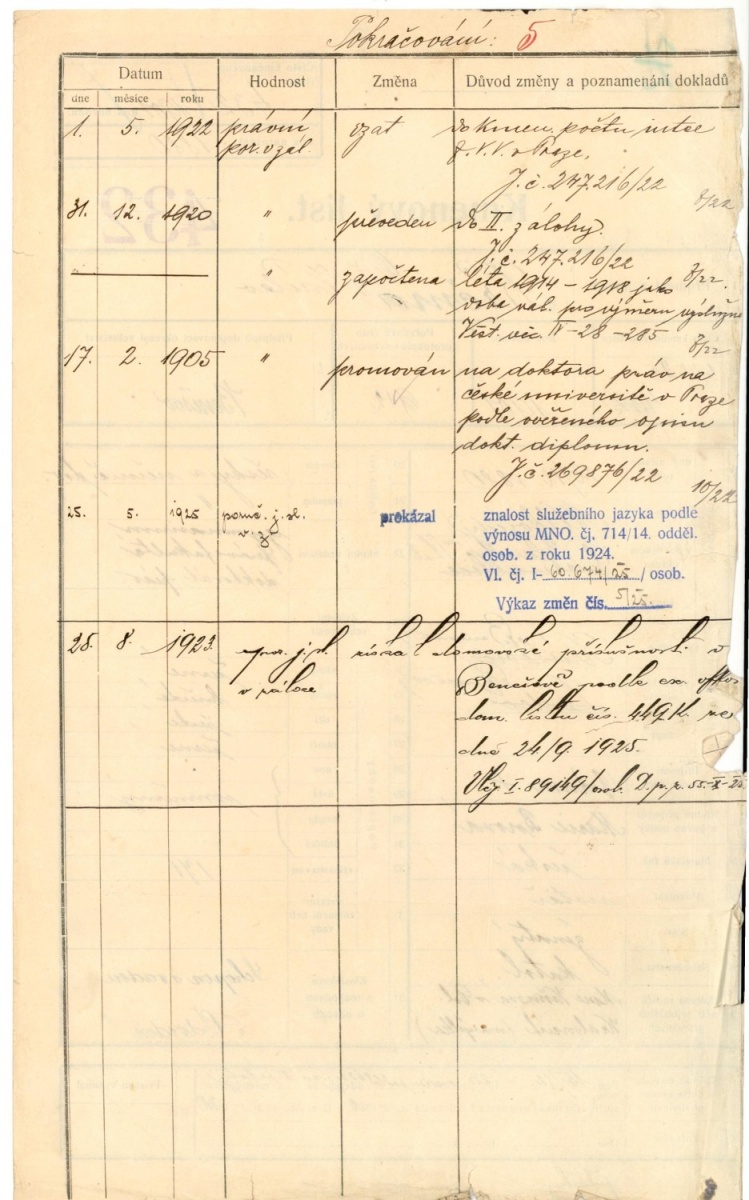 Pokračování: 5
Datum Hodnost Změna Důvod změny a poznamenání dokladů
dne měsíce roku
1. 5. 1922 právní vzat do kmen. počtu intce
por. v zál. z. V. V. v Praze.
J. č. 247.216/22
8/22
31. 12. 1920 " převeden do II. zálohy.
J. č. 247.216/22
" započtena léta 1914 – 1918 jako 8/22.
doba vál. pro výměru výslužné
Věst. věc. II – 28 – 285 8/22
17. 2. 1905 " promován na doktora práv na
české universitě v Praze
podle ověřeného opisu
dokt. diplomu.
J. č. 269876/22
10/22
25. 5. 1925 j. sl. prokázal znalost služebního jazyka podle
v z výnosu MNO. čj. 714/14. odděl.
osob. z roku 1924.
Vl. čj. I– 60.674/25 / osob.
Výkaz změn čís. 5/25.
28. 8. 1923. por. j. sl. získal domovské příslušnosti v
v záloze Benešově podle ex. offo
dom. listu čís. 449/K. ze
dně 24/9. 1925.
Vl. čj. I. 89149/osob.